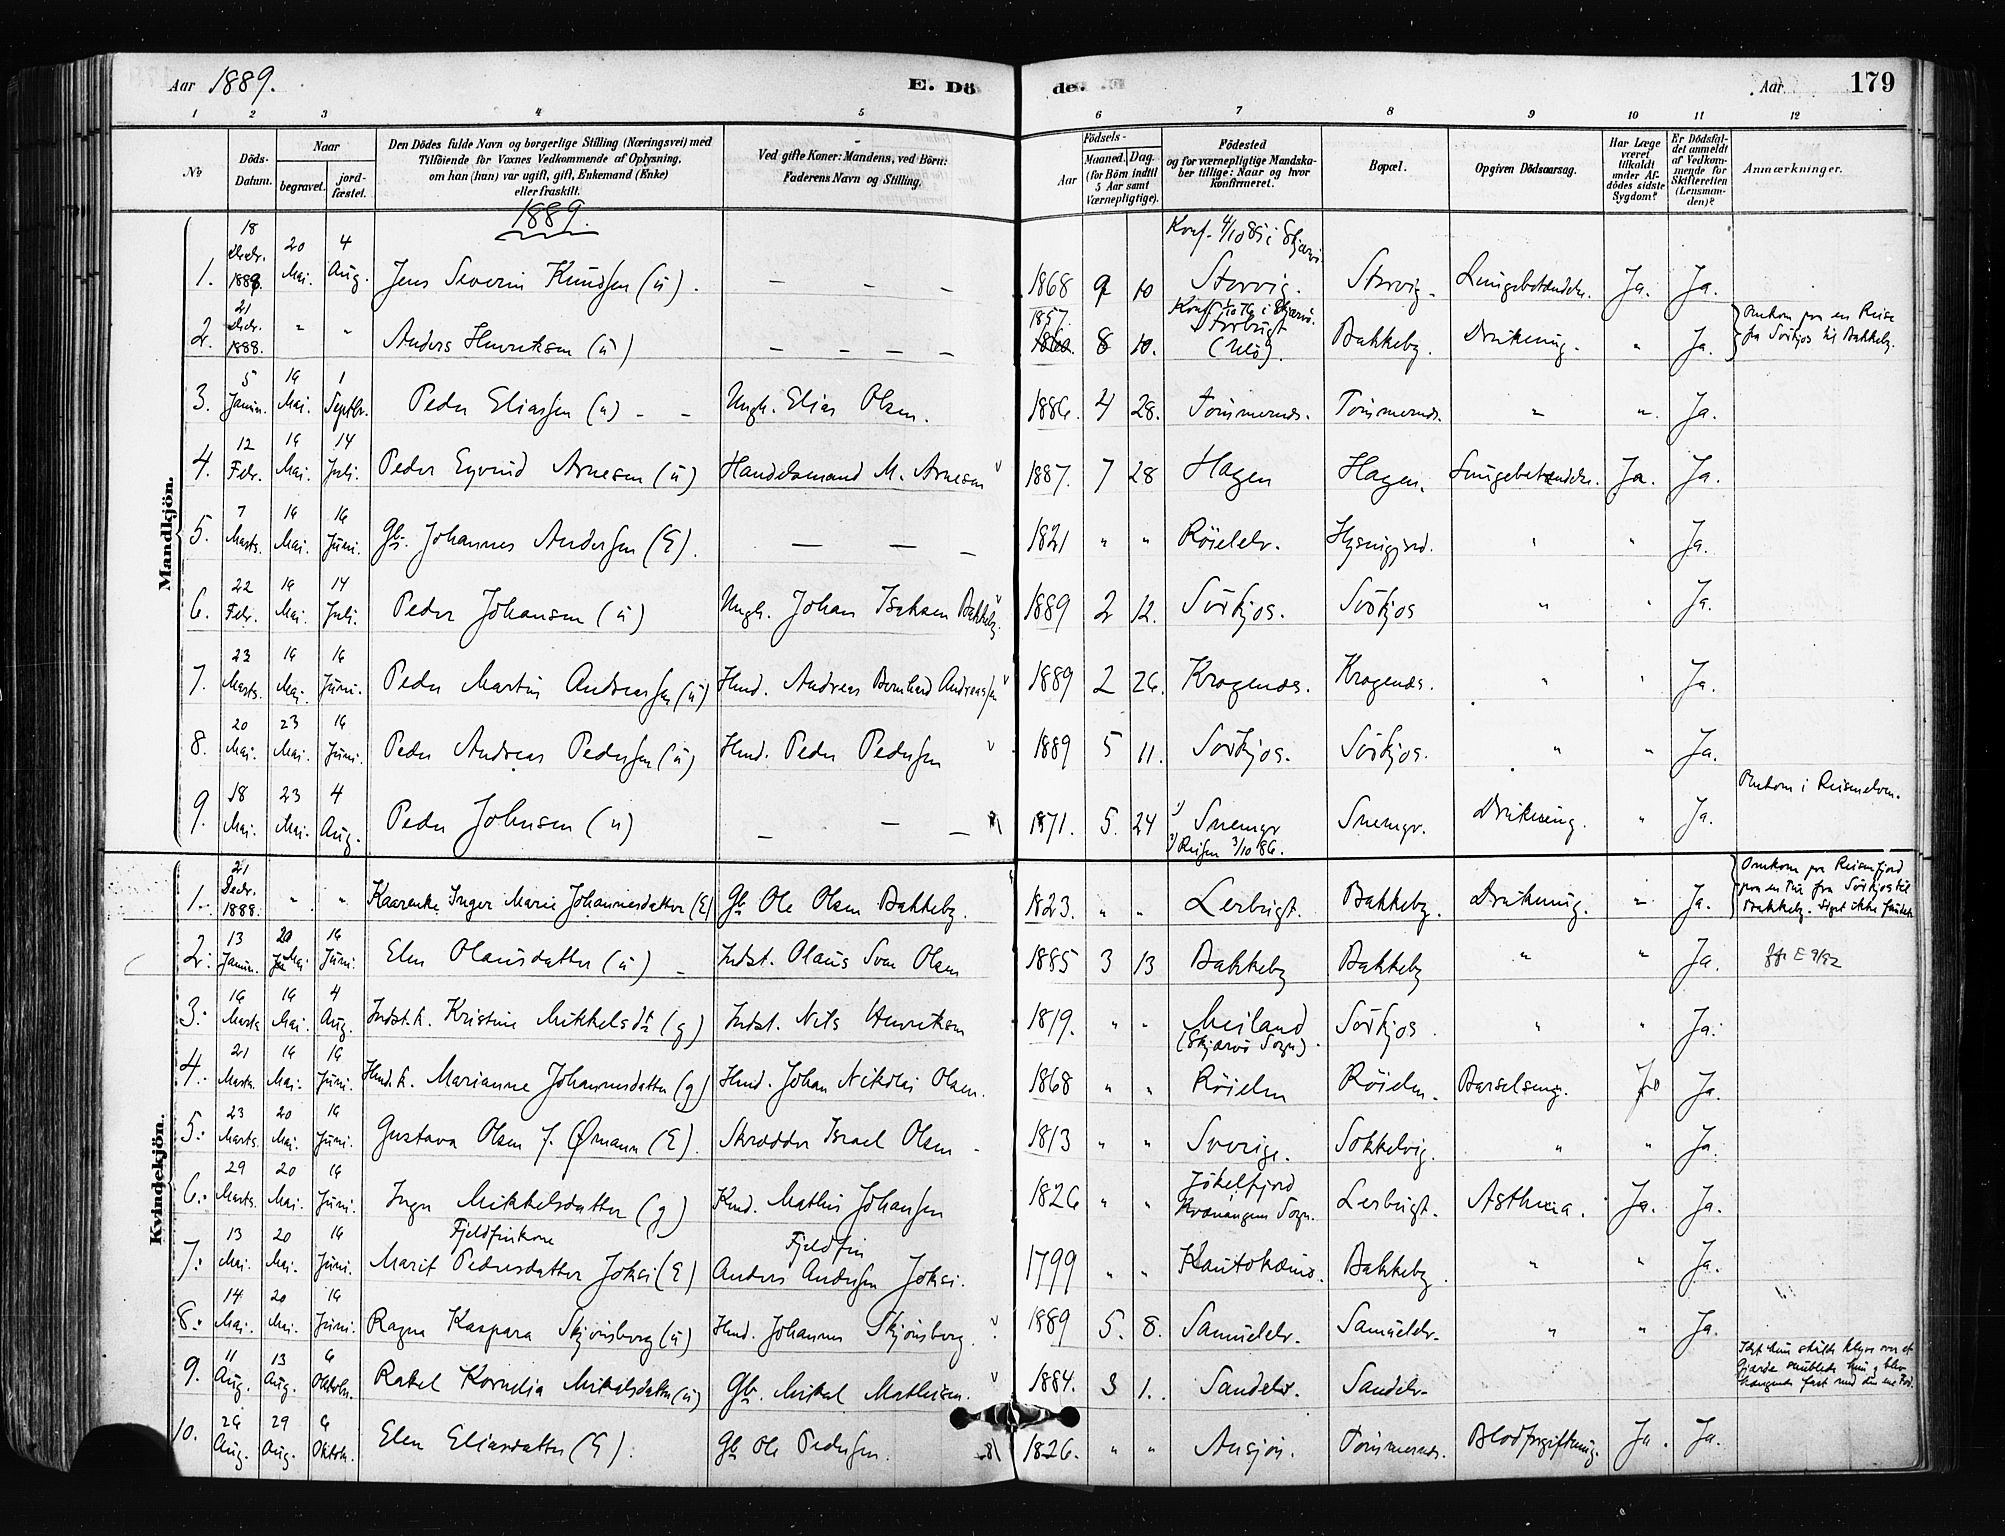 Aar 1889.
E. Dö
de.
Aar
179
1 2 3 4 5 6 7 8 9 10 11 12
No
Döds-Datum.
Naar
begravet.
jord-fæstet.
Den Dödes fulde Navn og borgerlige Stilling (Næringsvei) med
Tilföiende for Voxnes Vedkommende af Oplysning,
om han (hun) var ugift, gift, Enkemand (Enke)
eller fraskilt.
Ved gifte Koner: Mandens, ved Börn:
Faderens Navn og Stilling.
Födsels-
Aar
Maaned. Dag.
(for Börn indtil
5 Aar samt
Værnepligtige).
Födested
og for værnepligtige Mandska-
ber tillige: Naar og hvor
konfirmeret.
Bopæl.
Opgiven Dödsaarsag.
Har Læge
været
tilkaldt
under Af-
dödes sidste
Sygdom?
Er Dödsfal-
det anmeldt
af Vedkom-
mende for
Skifteretten
(Lensman-
den)?
Anmærkninger.
1889.
Mandkjön.
1. 18 Decbr. 1889 20 Mai. 4 Aug. Jens Severin Knudsen (u). — — — 1868 9 10 Konf. 4/10 85 i Skjærvö. Storvig. Storvig. Lungebetændelse. Ja. Ja.
2. 21 Decbr. 1888. " " Anders Henriksen (u) — — — — 1857. 1860. 8 10. Storbugt (Ulö). Bakkeby. Drukning. " Ja. Omkom paa en Reise
fra Sörkjos til Bakkeby.
3. 5 Januar. 19 Mai. 1 Septbr. Peder Eliassen (u) - - Ungk. Elias Olsen. 1886. 4 28. Tömmernes. Tömmernes. " " Ja.
4. 12 Febr. 19 Mai. 14 Juli. Peder Eyvind Arnesen (u) Handelsmand M. Arnesen 1887. 7 28 Hagen Hagen. Lungebetændelse. Ja. Ja.
5. 7 Marts. 19 Mai. 16 Juni. Gbr. Johannes Andersen (E). — — — 1821 " " Röielelv. " " Ja.
6. 22 Febr. 19 Mai. 14 Juli. Peder Johansen (u) Ungk. Johan Isaksen Bakkeby. 1889 2 12. Sörkjos. Sörkjos " " Ja.
7. 23 Marts. 19 Mai. 16 Juni. Peder Martin Andreassen (u) Hmd. Andreas Bernhard Andreassen 1889 2 26. Kragenæs. Kragenæs. " " Ja.
8. 20 Mai. 23 Mai. 16 Juni. Peder Andreas Pedersen (u) Hmd. Peder Pedersen 1889 5 11. Sörkjos. Sörkjos. " " Ja.
9. 18 Mai. 23 Mai. 4 Aug. Peder Johnsen (u) — — — 1871. 5. 24 1) Snemyr 2) Reisen 3/10 86. Snemyr. Drukning. " Ja. Omkom i Reisenelven.
Kvindekjön.
1. 21 Decbr. 1888. " " Kaarenke Inger Marie Johannesdatter (E) Gbr Ole Olsen Bakkeby. 1823. " " Lerbugt. Bakkeby. Drukning. " Ja. Omkom paa Reisenfjord
paa en Tur fra Sörkjos til
Bakkeby. Liget ikke fundet.
2. 13 Januar. 20 Mai 16 Juni. Elen Olausdatter (u) - Indst. Olaus Olsen 1885 3 13 Bakkeby Bakkeby " " Ja.
3. 16 Marts 19 Mai. 4 Aug. Indst.k. Kristine Mikkelsdtr (g) Indst. Nils Henriksen 1819. " " Meiland (Skjærvö Sogn). Sörkjos. " " Ja.
4. 21 Marts. 19 Mai. 16 Juni. Hmd.k. Marianne Johannesdatter (g) Hmd. Johan Nikolai Olsen. 1868 " " Röielen Röielen. Barselseng. Ja Ja.
5. 23 Marts. 20 Mai. 16 Juni. Gustava Olsen f. Ørmann (E). Skrædder Israel Olsen 1813 " " Sverige. Sokkelvig. " " Ja.
6. 29 Marts. 20 Mai. 16 Juni. Inger Mikkelsdatter (g) Kmd. Mathis Johansen 1826 " " Jökelfjord Kvænangen Sogn. Lerbugt. Asthma. Ja. Ja.
7. 13 Mai. 20 Mai. 16 Juni. Fjeldfinkone Marit Pedersdatter Joksi (E) Fjeldfin Anders Andersen Joksi. 1799 " " Kautokeino. Bakkeby. " " Ja.
8. 14 Mai. 20 Mai. 16 Juni. Ragna Kaspara Skjönsberg (u) Hmd. Johannes Skjönsberg. 1889 5. 8. Samuelelv. Samuelelv. " " Ja.
9. 11 Aug. 13 Aug. 6 Oktobr. Rakel Kornelia Mikalsdatter (u) Gbr. Mikal Mathisen. 1884. 3 1. Sandelv. Sandelv. Idet hun skulde klyve over et
Gjærde snublede hun og blev
hængende fast med den ene Fod.
10. 26 Aug. 29 Aug. 6 Oktobr. Elen Eliasdatter (E). Gbr Ole Pedersen. 1826. " " Ansjön. Tömmernes. Blodforgiftning. Ja. Ja.